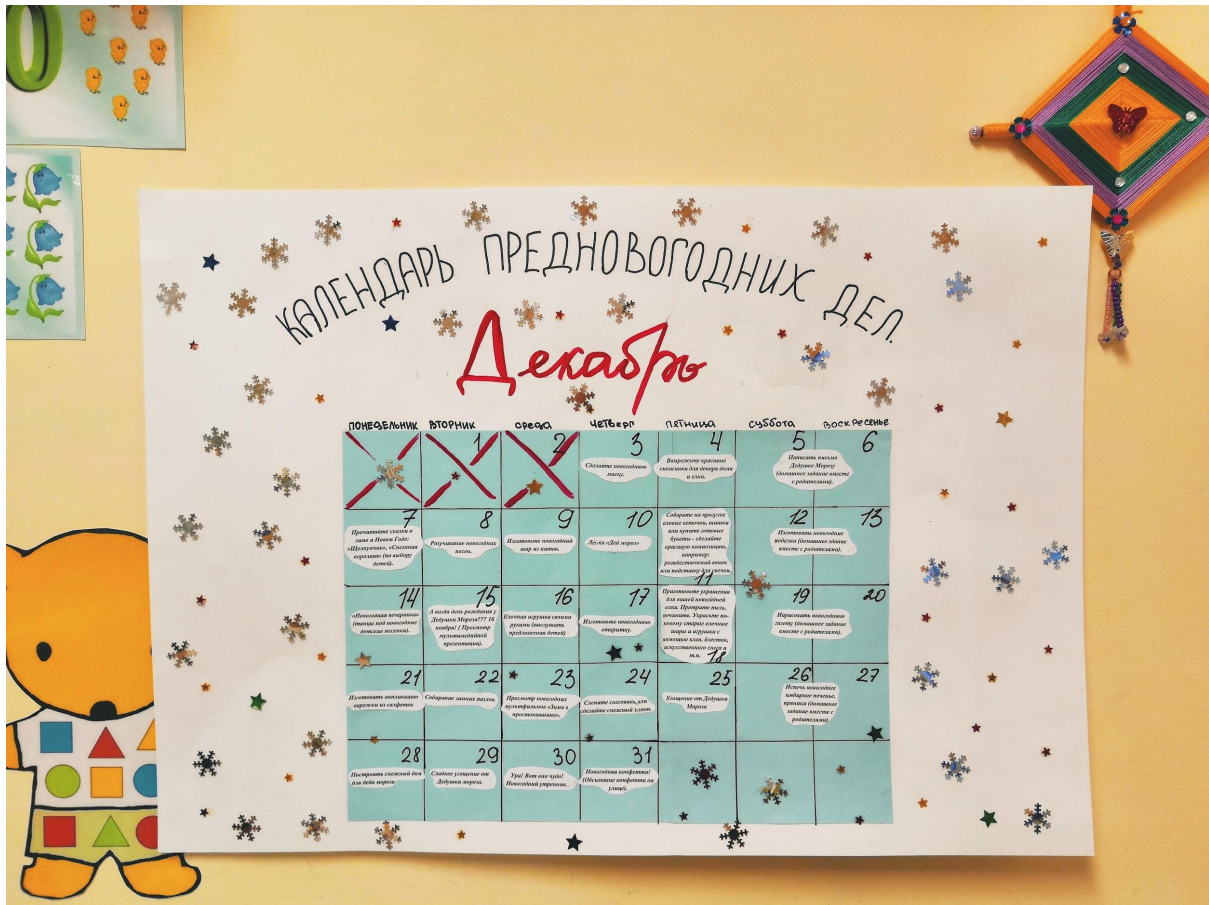 0
КАЛЕНДАРЬ ПРЕДНОВОГОДНИХ ДЕЛ.
Декабрь
ПОНЕДЕЛЬНИК ВТОРНИК среда четверг пятница суббота воскресенье
1 2 3 4 5 6
Сделайте новогоднюю
маску.
Вырежьте красивые
снежинки для декора дома
и елки.
Написать письмо
Дедушке Морозу
(домашнее задание вместе
с родителями).
7 8 9 10 11 12 13
Прочитайте сказки о
зиме и Новом Годе:
«Щелкунчик», «Снежная
королева» (по выбору
детей).
Разучивание новогодних
песен.
Изготовьте новогодний
шар из ниток.
Лепка «Дед мороз»
Соберите на прогулке
еловые веточки, шишки
или купите готовые
букеты - сделайте
красивую композицию,
например:
рождественский венок
или подставку для свечки.
Изготовить новогодние
поделки (домашнее задание
вместе с родителями).
14 15 16 17 18 19 20
«Новогодняя вечеринка»
(танцы под новогодние
детские песенки).
А когда день рождения у
Дедушки Мороза??? 18
ноября! ( Просмотр
мультимедийной
презентации).
Елочная игрушка своими
руками (выслушать
предложения детей)
Изготовьте новогоднюю
открытку.
Приготовьте украшения
для вашей новогодней
елки. Протрите пыль,
почините. Украсьте по-
новому старые елочные
шары и игрушки с
помощью клея, блесток,
искусственного снега и
т.п.
Нарисовать новогоднюю
газету (домашнее задание
вместе с родителями).
21 22 23 24 25 26 27
Изготовить аппликацию
варежки из салфеток
Собирание зимних пазлов.
Просмотр новогодних
мультфильмов «Зима в
простоквашино».
Слепите снеговика, или
сделайте снежный замок.
Угощение от Дедушки
Мороза
Испечь новогоднее
имбирное печенье,
пряники (домашнее
задание вместе с
родителями)
28 29 30 31
Построить снежный дом
для деда мороза
Сладкое угощение от
Дедушки мороза.
Ура! Вот оно чудо!
Новогодний утренник.
Новогодняя конфетти!
(Обсыпание конфетти на
улице).